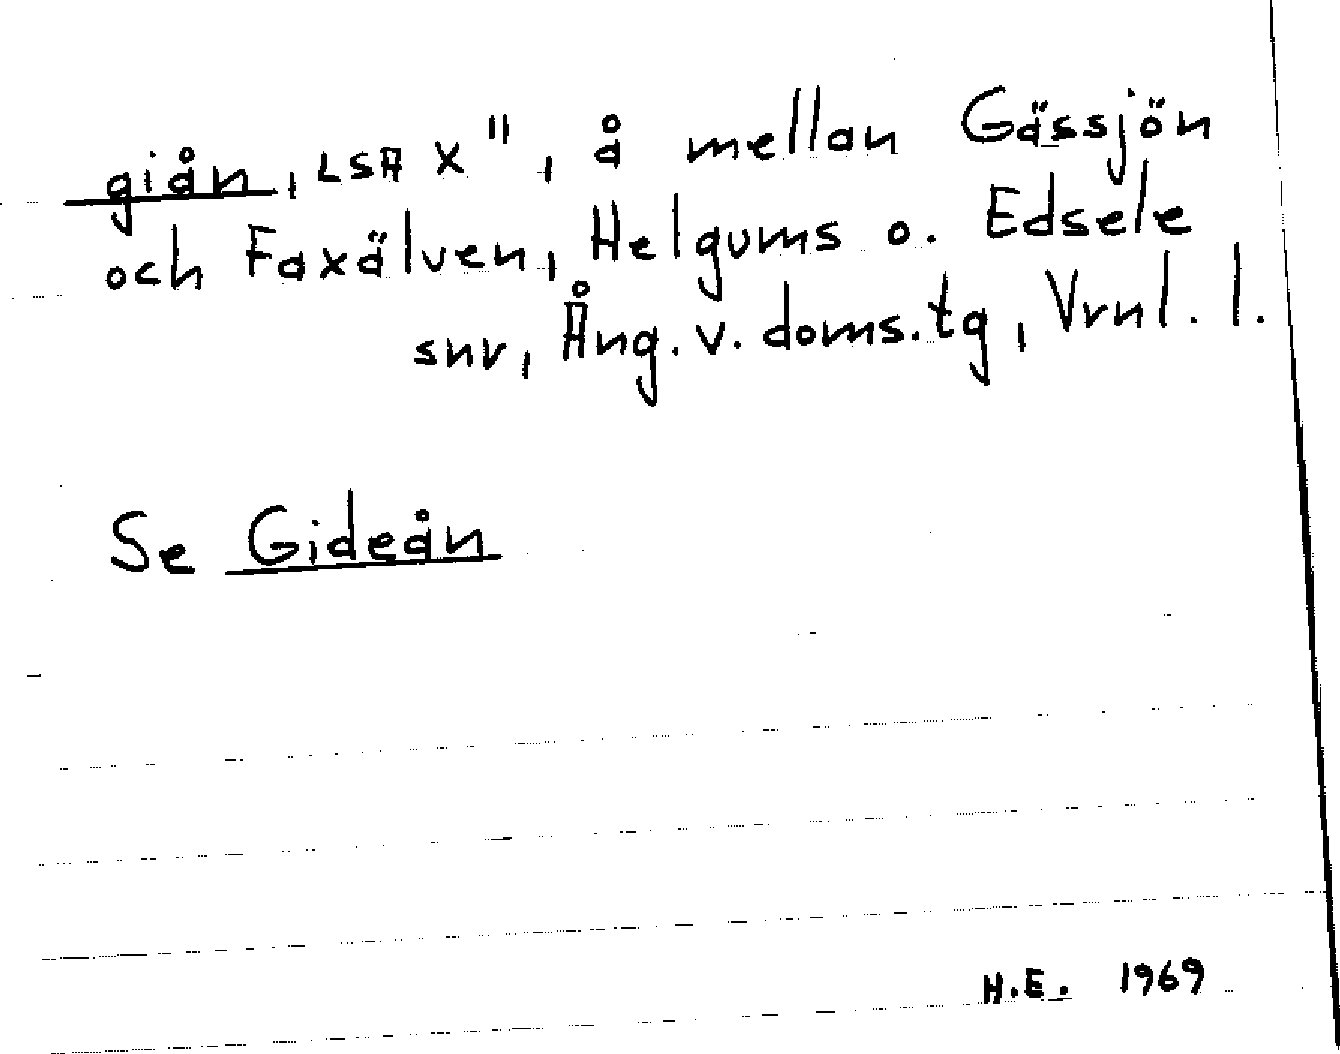 giån, LSA X", å mellan Gässjön
och Faxälven, Helgums o. Edsele
snr, Ång. v. doms.tg, Vrnl. l.
Se Gideån
H.E. 1969